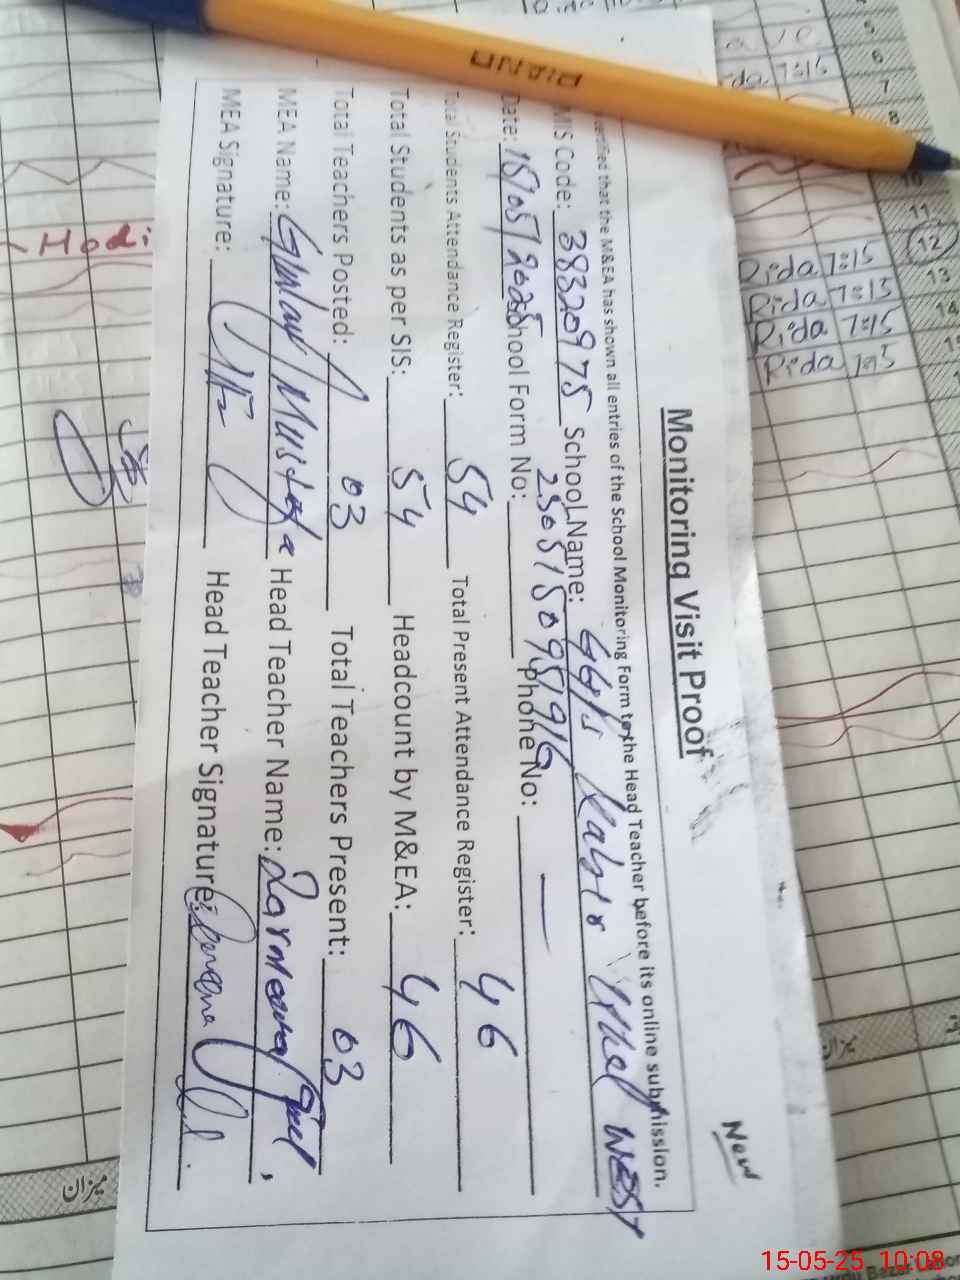 New
Monitoring Visit Proof
verified that the M&EA has shown all entries of the School Monitoring Form to the Head Teacher before its online submission.
MIS Code: 38320975 School Name: GGPS Kahir Khel West
Date: 15/05/2025 School Form No: 2505150959916 Phone No: —
Total Students Attendance Register: 54 Total Present Attendance Register: 46
Total Students as per SIS: 54 Headcount by M&EA: 46
Total Teachers Posted: 03 Total Teachers Present: 03
MEA Name: Ghulam Mustafa Head Teacher Name: Gul
MEA Signature: Head Teacher Signature:
PIANO
5
6
7
8
11
12
13
14
7:15
Rida 7:15
Rida 7:15
Rida 7:15
Rida 7:15
Hadi
میزان
میزان
15-05-25 10:08